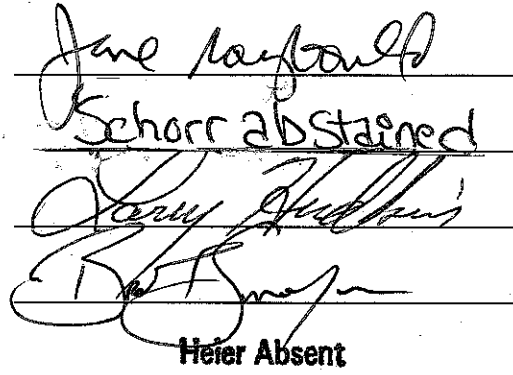 Jane Raybould
Schorr abstained
Larry Hudkins
Heier Absent